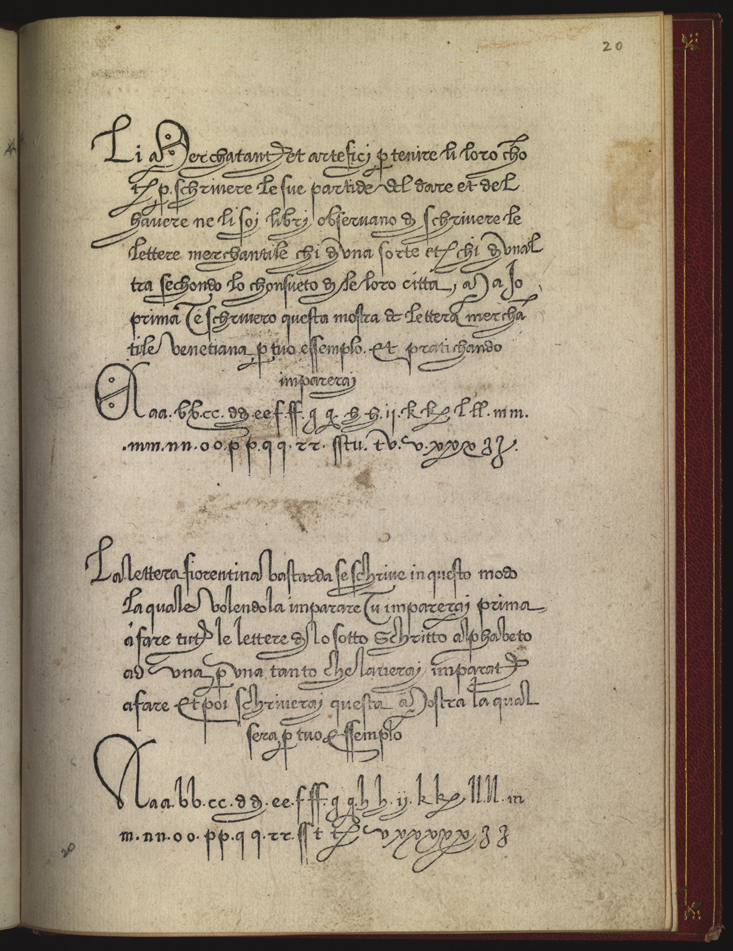 20
Li Merchatanti et artefici p tenire li loro cho
ti p. schrivere le sue partide del dare et del
havere ne li soi libri observano di schrivere le
lettere merchantile chi di una sorte et chi di unal
tra sechondo lo chonsueto di le loro citta, Ma Io
prima Te schrivero questa mostra de lettera mercha
tile Venetiana p tuo essemplo. Et pratichando
imparerai
Aaa. bb. cc. dd. ee f. ff. g g. h h. ij. k k l. ll. mm.
.mm. nn. oo. p p. q q. rr. sstu. tv. v. v. xxx z z.
La lettera fiorentina bastarda se schrive in questo modo
La quale Volendola imparare Tu imparerai prima
a fare tutte le lettere di lo sotto Schritto alphabeto
ad una p una tanto che laverai imparate
a fare Et poi schriverai questa Mostra la qual
sera p tuo Essemplo
Aaa. bb. cc. dd. ee. f. ff. g g h h. ij. k k ll ll. m
m. nn. oo. pp. q q. rr. ss t t v xxxxx z z
20